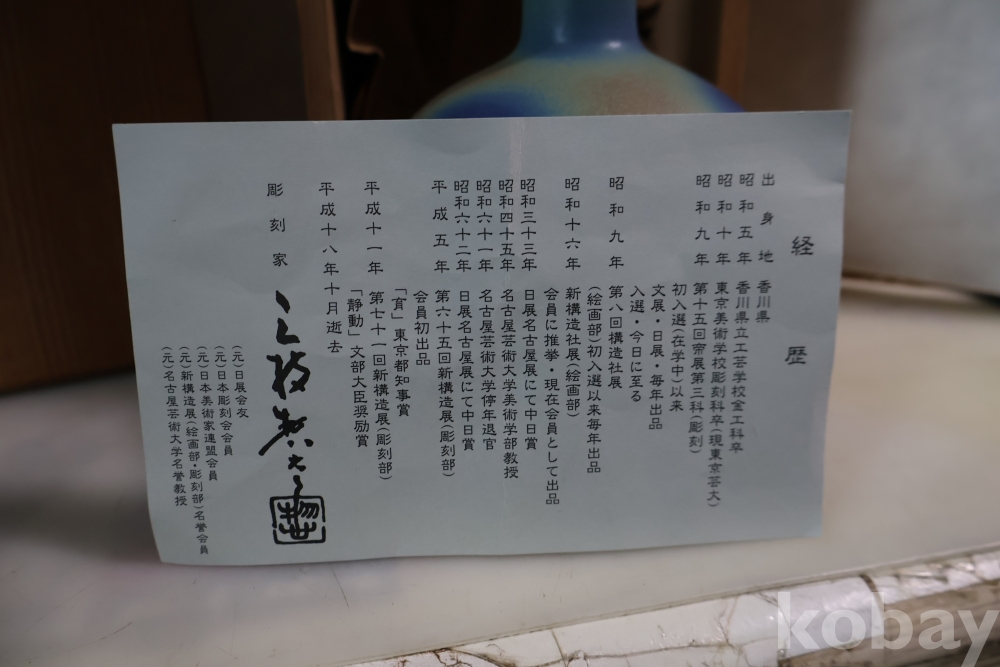 経歴
出身地 香川県
昭和五年 香川県立工芸学校金工科卒
昭和十年 東京美術学校彫刻科卒(現東京芸大)
昭和九年 第十五回帝展第三科(彫刻)
初入選(在学中)以来
文展・日展・毎年出品
入選・今日に至る
昭和九年 第八回構造社展
(絵画部)初入選以来毎年出品
昭和十六年 新構造社展(絵画部)
会員に推挙・現在会員として出品
昭和三十三年 日展名古屋展にて中日賞
昭和四十五年 名古屋芸術大学美術学部教授
昭和六十一年 名古屋芸術大学停年退官
昭和六十二年 日展名古屋展にて中日賞
平成五年 第六十五回新構造展(彫刻部)
会員初出品
「育」東京都知事賞
平成十一年 第七十一回新構造展(彫刻部)
「静動」文部大臣奨励賞
平成十八年十月逝去
彫刻家
(元)日展会友
(元)日本彫刻会会員
(元)日本美術家連盟会員
(元)新構造展(絵画部・彫刻部)名誉会員
(元)名古屋芸術大学名誉教授
kobay